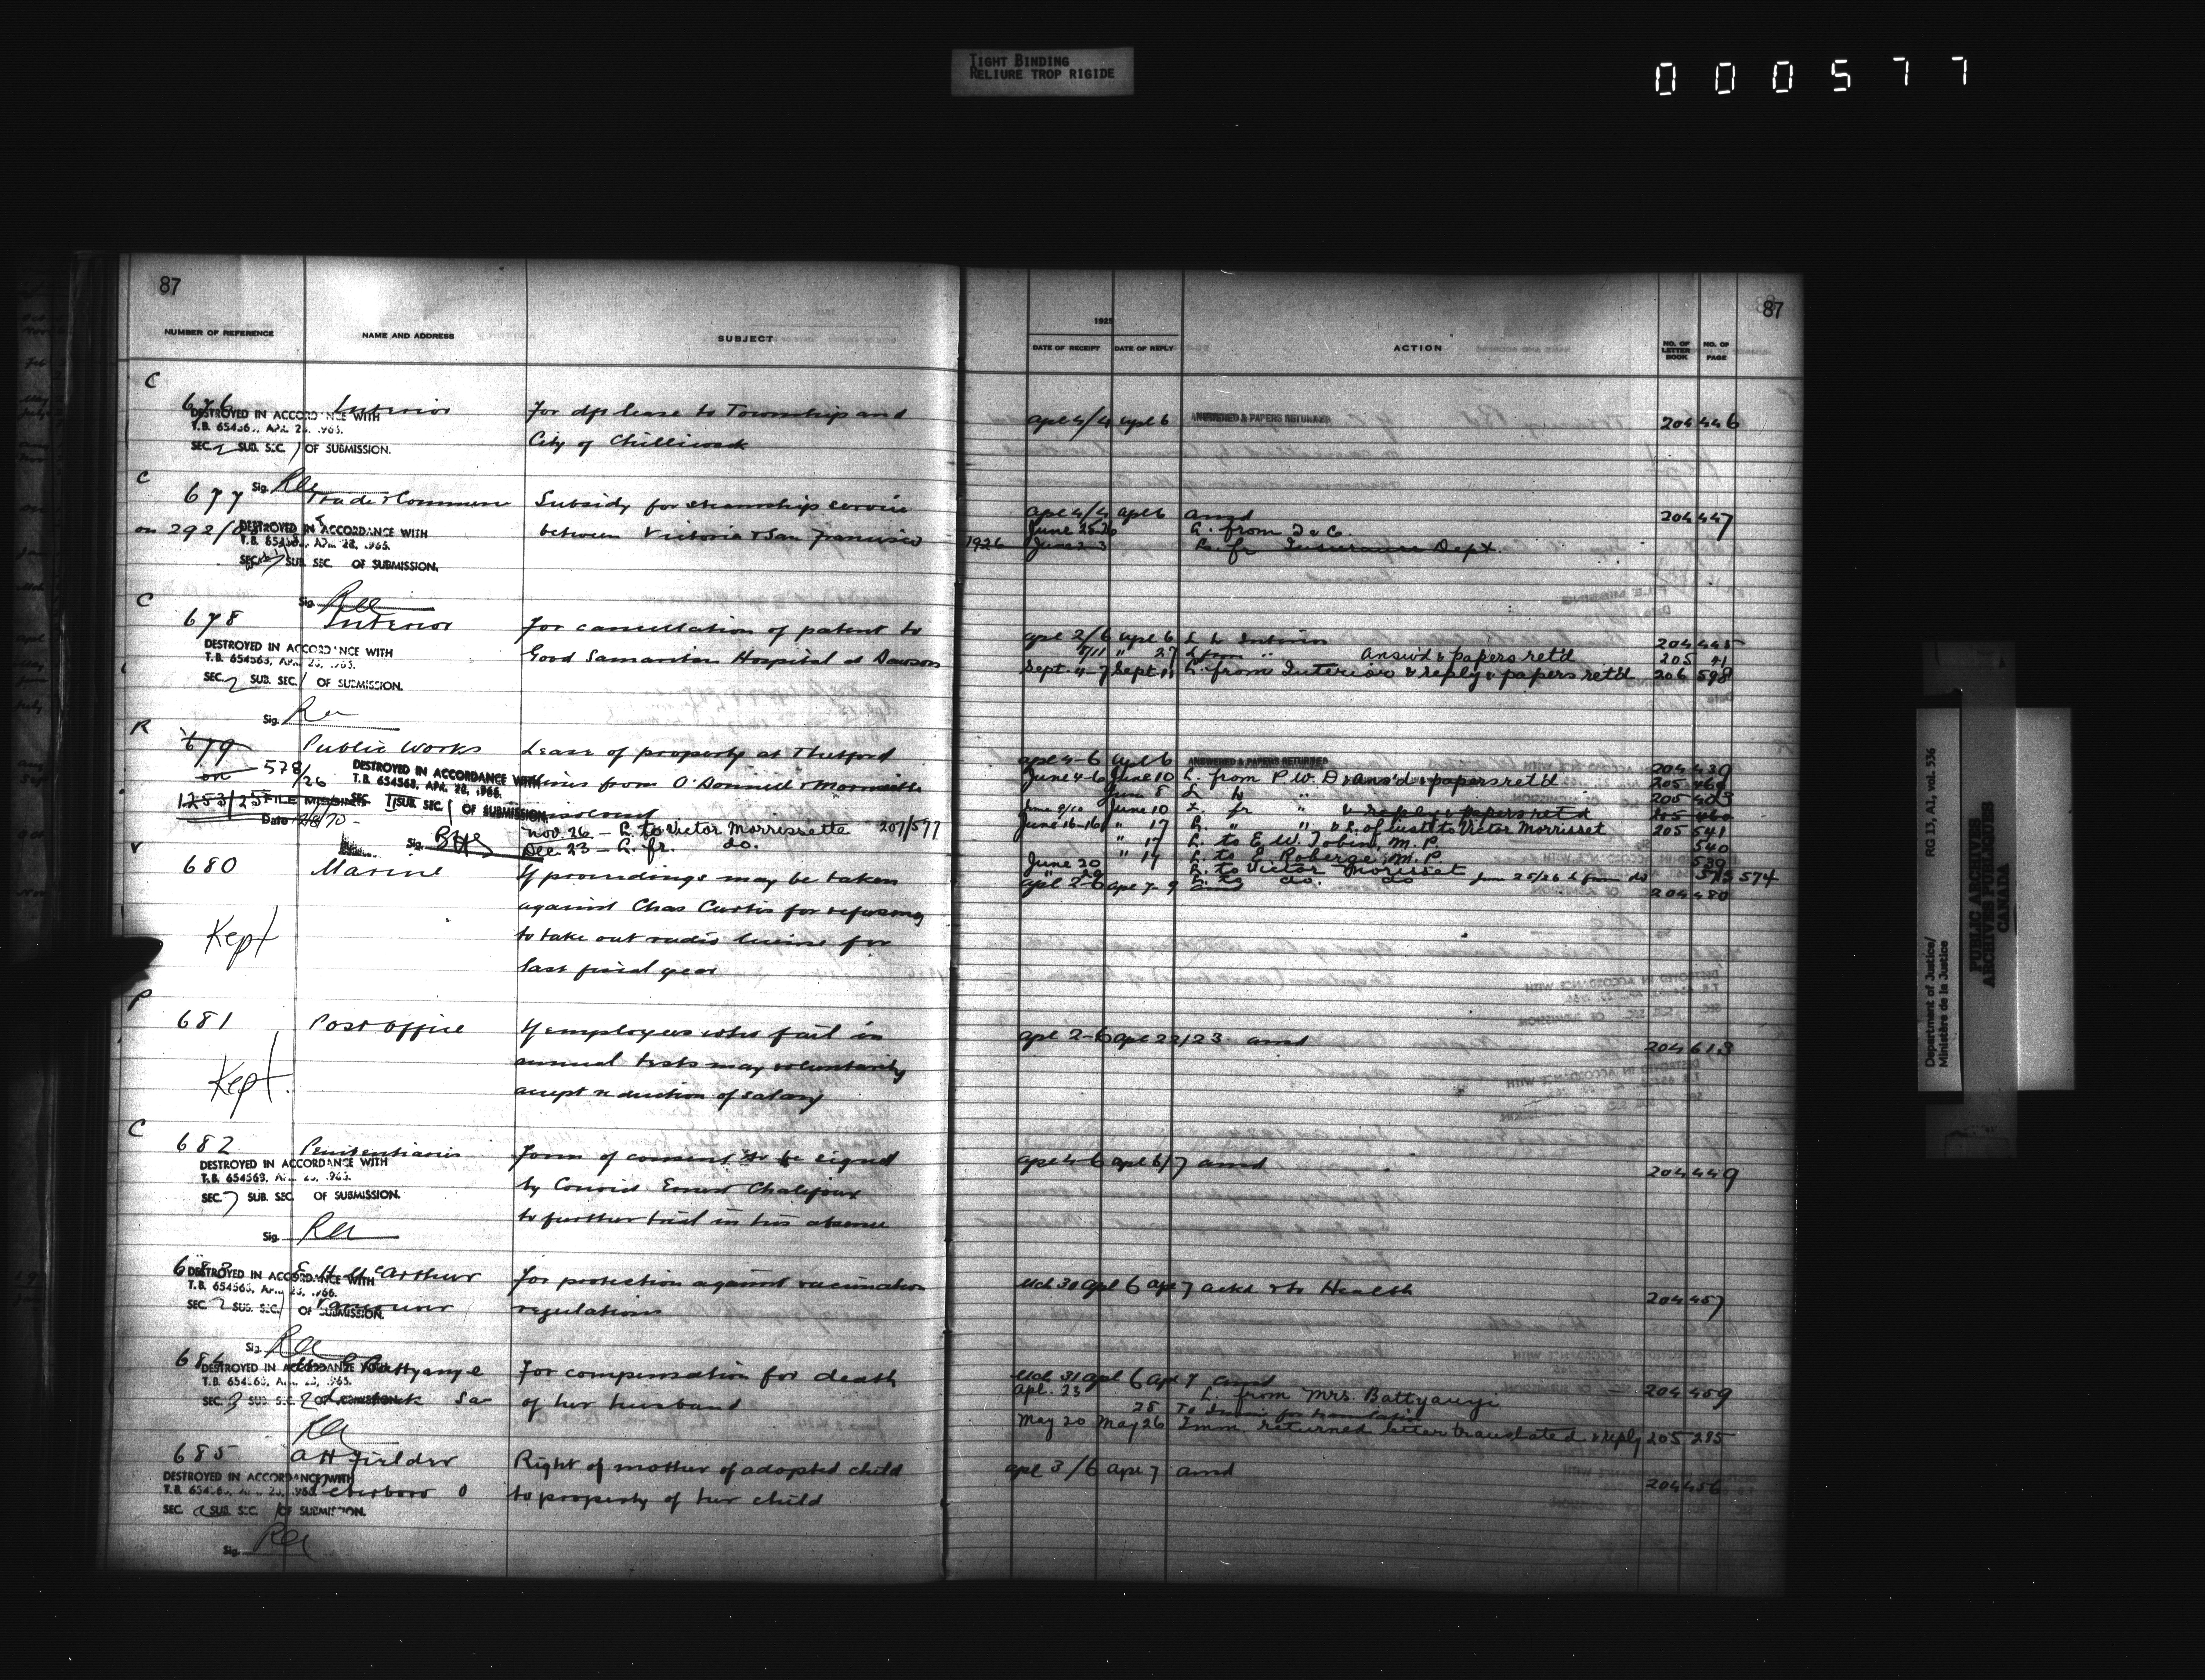 TIGHT BINDING
RELIURE TROP RIGIDE
000577
87
NUMBER OF REFERENCE NAME AND ADDRESS SUBJECT
C
676 Interior For dft lease to Township and
DESTROYED IN ACCORDANCE WITH
T.B. 654563, APR. 28, 1966.
City of Chilliwack
SEC. 2 SUB. SEC. 1 OF SUBMISSION.
Sig.
C
677 Trade & Commerce Subsidy for steamship service
on 292/ between Victoria & San Francisco
DESTROYED IN ACCORDANCE WITH
T.B. 654563, APR. 28, 1966.
SEC. SUB. SEC. OF SUBMISSION.
Sig.
C
678 Interior For cancellation of patent to
Good Samaritan Hospital at Dawson
DESTROYED IN ACCORDANCE WITH
T.B. 654563, APR. 28, 1966.
SEC. 2 SUB. SEC. 1 OF SUBMISSION.
Sig.
R
679 Public Works Lease of property at Thetford
on 578/26 Mines from O'Donnell & Morrissette
DESTROYED IN ACCORDANCE WITH
T.B. 654563, APR. 28, 1966.
SEC. 1 SUB. SEC. 1 OF SUBMISSION.
1253/25 FILE MISSING
Date
Nov. 26 - L. to Victor Morrissette 207/597
Sig.
Dec. 23 - L. fr. do.
680 Marine If proceedings may be taken
against Chas Curtis for refusing
Kept to take out radio license for
last fiscal year
P
681 Post Office If employees who fail in
annual tests may voluntarily
Kept. accept reduction of salary
C
682 Penitentiaries Form of consent to be signed
DESTROYED IN ACCORDANCE WITH
T.B. 654563, APR. 28, 1966.
by Convict Ernest Chalifoux
SEC. SUB. SEC. OF SUBMISSION.
to further trial in his absence
Sig.
683 E H McArthur For protection against vaccination
DESTROYED IN ACCORDANCE WITH
T.B. 654563, APR. 28, 1966.
Vancouver regulations
SEC. 2 SUB. SEC. 1 OF SUBMISSION.
Sig.
684 Battyanyi For compensation for death
DESTROYED IN ACCORDANCE WITH
T.B. 654563, APR. 28, 1966.
Sa of her husband
SEC. 3 SUB. SEC. 2 OF SUBMISSION.
685 A H Fielder Right of mother of adopted child
DESTROYED IN ACCORDANCE WITH
T.B. 654563, APR. 28, 1966.
Peterboro O to property of her child
SEC. 2 SUB. SEC. 1 OF SUBMISSION.
Sig.
87
1925
DATE OF RECEIPT DATE OF REPLY ACTION NO. OF LETTER BOOK NO. OF PAGE
apl 4/4 apl 6 ANSWERED & PAPERS RETURNED 204 446
apl 4/4 apl 6 ansd 204 447
June 25-26 L. from T & C.
1926 June 2-3 L. fr Insurance Dept.
apl 2/6 apl 6 L to Interior 204 445
7/11 " 27 L from " Answ'd & papers ret'd 205 41
Sept. 4-7 Sept. 11 L. from Interior & reply & papers ret'd 206 598
apl 4-6 apl 6 ANSWERED & PAPERS RETURNED 204 439
June 4-6 June 10 L. from P.W. D & ans'd & papers ret'd 205 460
June 8 L to " 205 403
June 9/10 June 10 L fr " & reply & papers ret'd 205 460
June 16-16 " 17 L. " " & L. of instr to Victor Morrisset 205 541
" 17 L. to E. W. Tobin, M.P. 540
" 17 L. to E. Roberge, M.P. 539
June 20 L. to Victor Morisset
" 29 L. to do. do June 25/26 L from do 573 574
apl 2-6 apl 7-9 204 480
apl 2-6 apl 22/23 ansd 204 613
apl 4-6 apl 6/7 ansd 204 449
Mch 30 apl 6 apl 7 ackd & to Health 204 457
Mch 31 apl 6 apl 7 ansd 204 459
Apl. 23 L. from Mrs. Battyanyi
28 To Imm for translation
May 20 May 26 Imm. returned letter translated & reply 205 285
apl 3/6 apl 7 ansd 204 456
Department of Justice/
Ministère de la Justice
RG 13, A1, vol. 536
PUBLIC ARCHIVES
ARCHIVES PUBLIQUES
CANADA